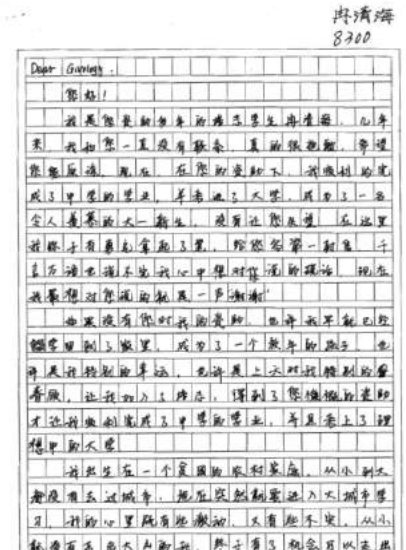 8300
您好!
我是您资助多年的 学生 几年
来,我和您一直没有联系,真的很抱歉,希望
您能原谅。现在,在您的资助下,我顺利的完
成了中学的学业,并考进了大学,成为了一名
令人羡慕的大一新生,没有让您失望。在这里
我终于有勇气拿起了笔,给您写第一封信,千
言万语也说不完我心中想对您说的话,现在
我最想对您说的就是一声谢谢!
如果没有您对我的资助,也许我早就已经
回到了家里,成为了一个 的孩子,也
许是我特别的幸运,也许是上天对我特别的眷
顾,让我加入了 ,得到了您慷慨的资助
才让我顺利完成了中学的学业,并且考上了理
想中的大学
我出生在一个贫困的农村家庭,从小到大
都没有去过城市,现在突然就要进入大城市学
习,我的心里既有些激动,又有些不安,从小